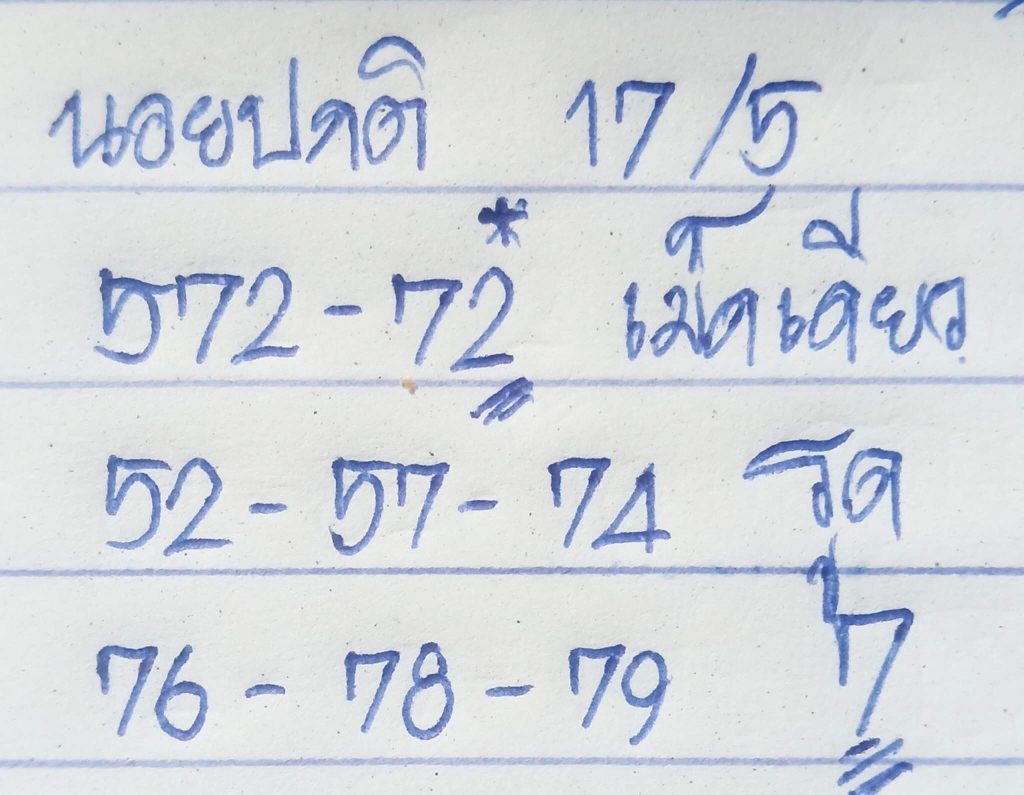 นอยปกติ 17/5
572-72* เม็ดเดียว
52-57-74 รูด
76-78-79 7